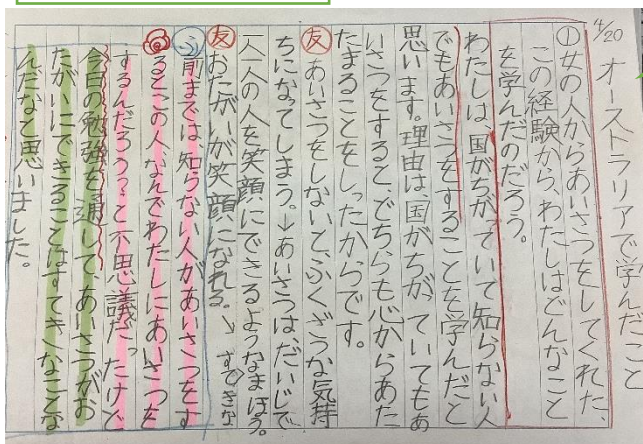 4/20 オーストラリアで学んだこと
①女の人からあいさつをしてくれた、
この経験から、わたしはどんなこと
を学んだのだろう。
わたしは、国がちがっていて知らない人
でもあいさつをすることを学んだと
思います。理由は、国がちがっていてもあ
いさつをすると、どちらも心からあた
たまることをしったからです。
友 あいさつをしないと、ふくざつな気持
ちになってしまう。→あいさつは、だいじで
一人一人の人を笑顔にできるようなまほう。
友 おたがいが笑顔になれる。→すてきな
ふ 前までは、知らない人があいさつをす
るとこの人なんでわたしにあいさつを
するんだろう?と不思議だったけど
今日の勉強を通して、あいさつがお
たがいにできることはすてきなことな
んだなと思いました。